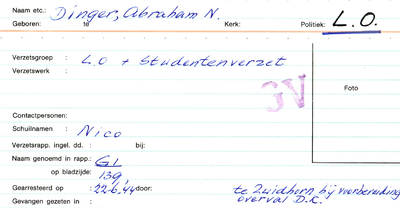 Naam etc.: Dinger, Abraham N.
Geboren: te Kerk: Politiek: L.O.
Verzetsgroep : L.O + Studentenverzet
Verzetswerk :
GV
Foto
Contactpersonen:
Schuilnamen : Nico
Verzetsrapp. ingel. dd. : bij:
Naam genoemd in rapp.: GI
op bladzijde: 139,
Gearresteerd op : 22-6,'44 door: te Zuidhorn bij voorbereiding
Gevangen gezeten in : overval D.K.